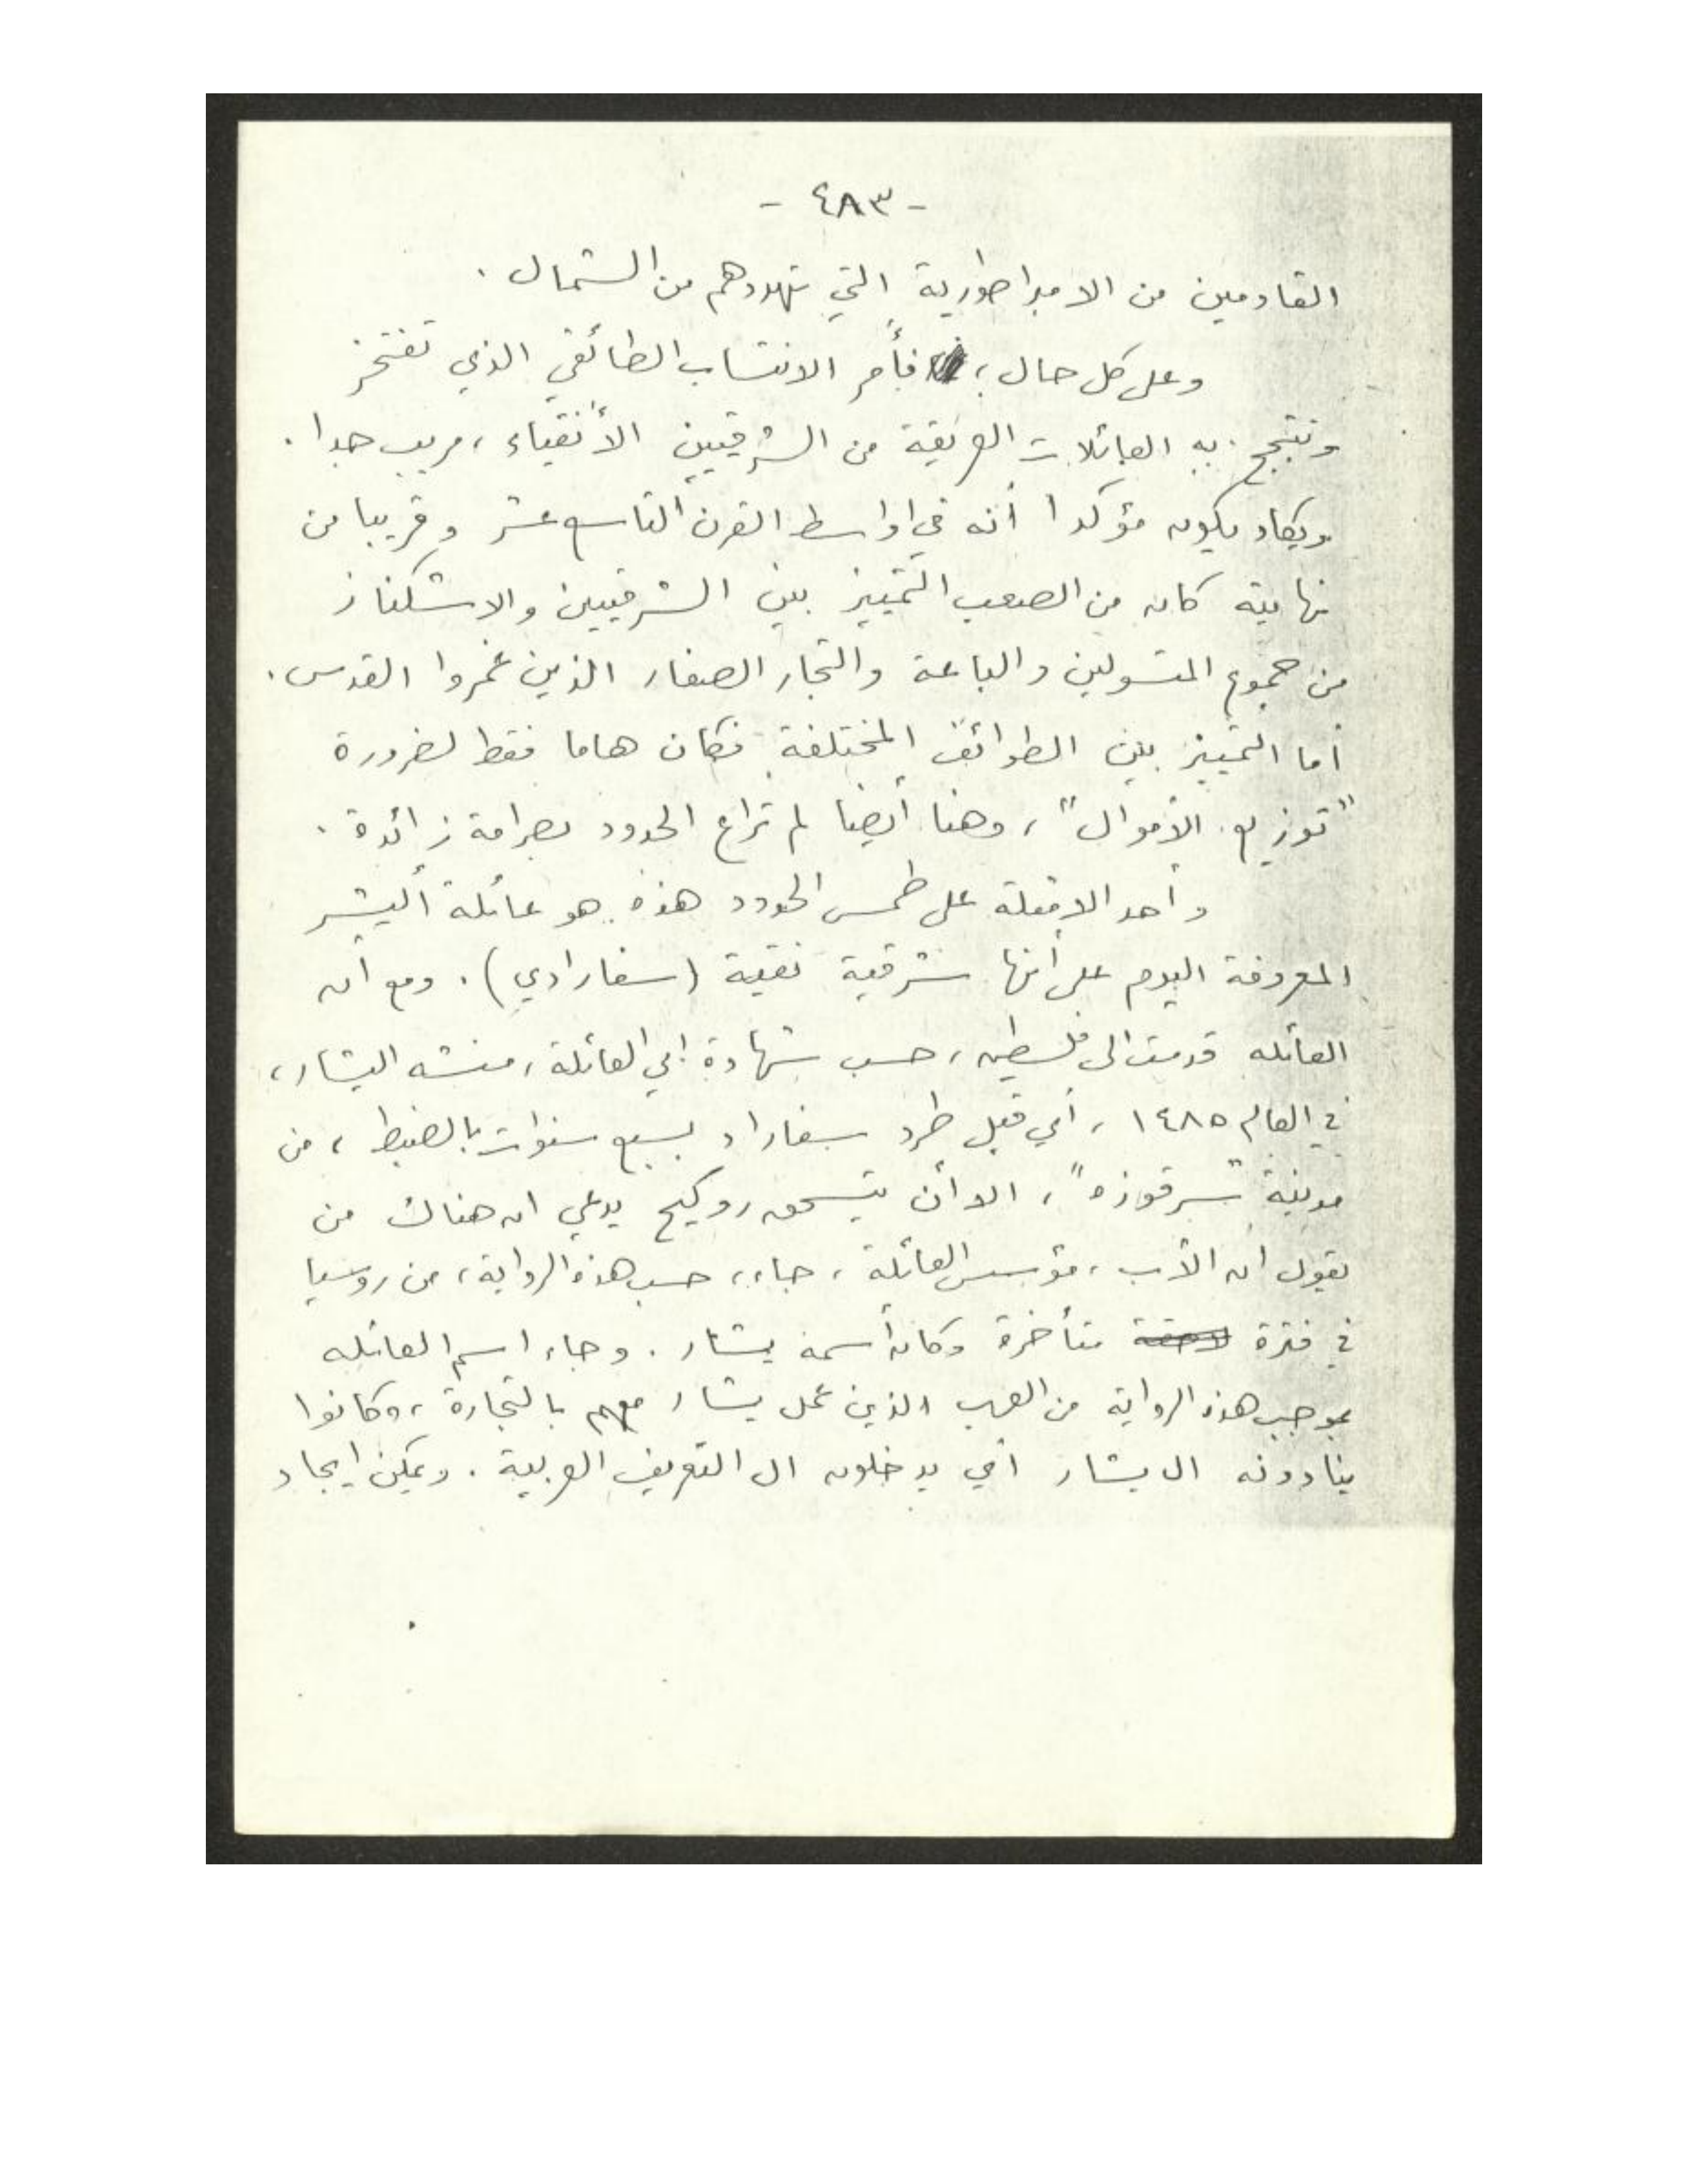 - ٤٨٣ -
القادمين من الامبراطورية التي تهددهم من الشمال .
وعلى كل حال ، فأمر الانتساب الطائفي الذي تفتخر
وتتبجح به العائلات العريقة من الشرقيين الأنقياء ، مريب جدا .
ويكاد يكون مؤكدا أنه في اواسط القرن التاسع عشر وقريبا من
نهايته كان من الصعب التمييز بين الشرقيين والاشكناز
من جموع المتسولين والباعة والتجار الصغار الذين غمروا القدس .
أما التمييز بين الطوائف المختلفة فكان هاما فقط لضرورة
"توزيع الأموال" ، وهنا أيضا لم تراع الحدود بصرامة زائدة .
وأحد الامثلة على طمس الحدود هذه هو عائلة أليشر
المعروفة اليوم على أنها شرقية نقية (سفارادي) . ومع أن
العائله قدمت الى فلسطين ، حسب شهادة ابي العائلة ، منشه اليشار ،
في العام ١٤٨٥ ، أي قبل طرد سفاراد بسبع سنوات بالضبط ، من
مدينة "سرقوزه" ، الا أن يتسحق روكيح يدعي ان هناك من
يقول ان الأب ، مؤسس العائلة ، جاء ، حسب هذه الرواية ، من روسيا
في فترة متأخرة وكان أسمه يشار . وجاء اسم العائله
بموجب هذه الرواية من العرب الذين عمل يشار معهم بالتجارة ، وكانوا
ينادونه ال يشار أي يدخلون ال التعريف العربية . ويمكن ايجاد